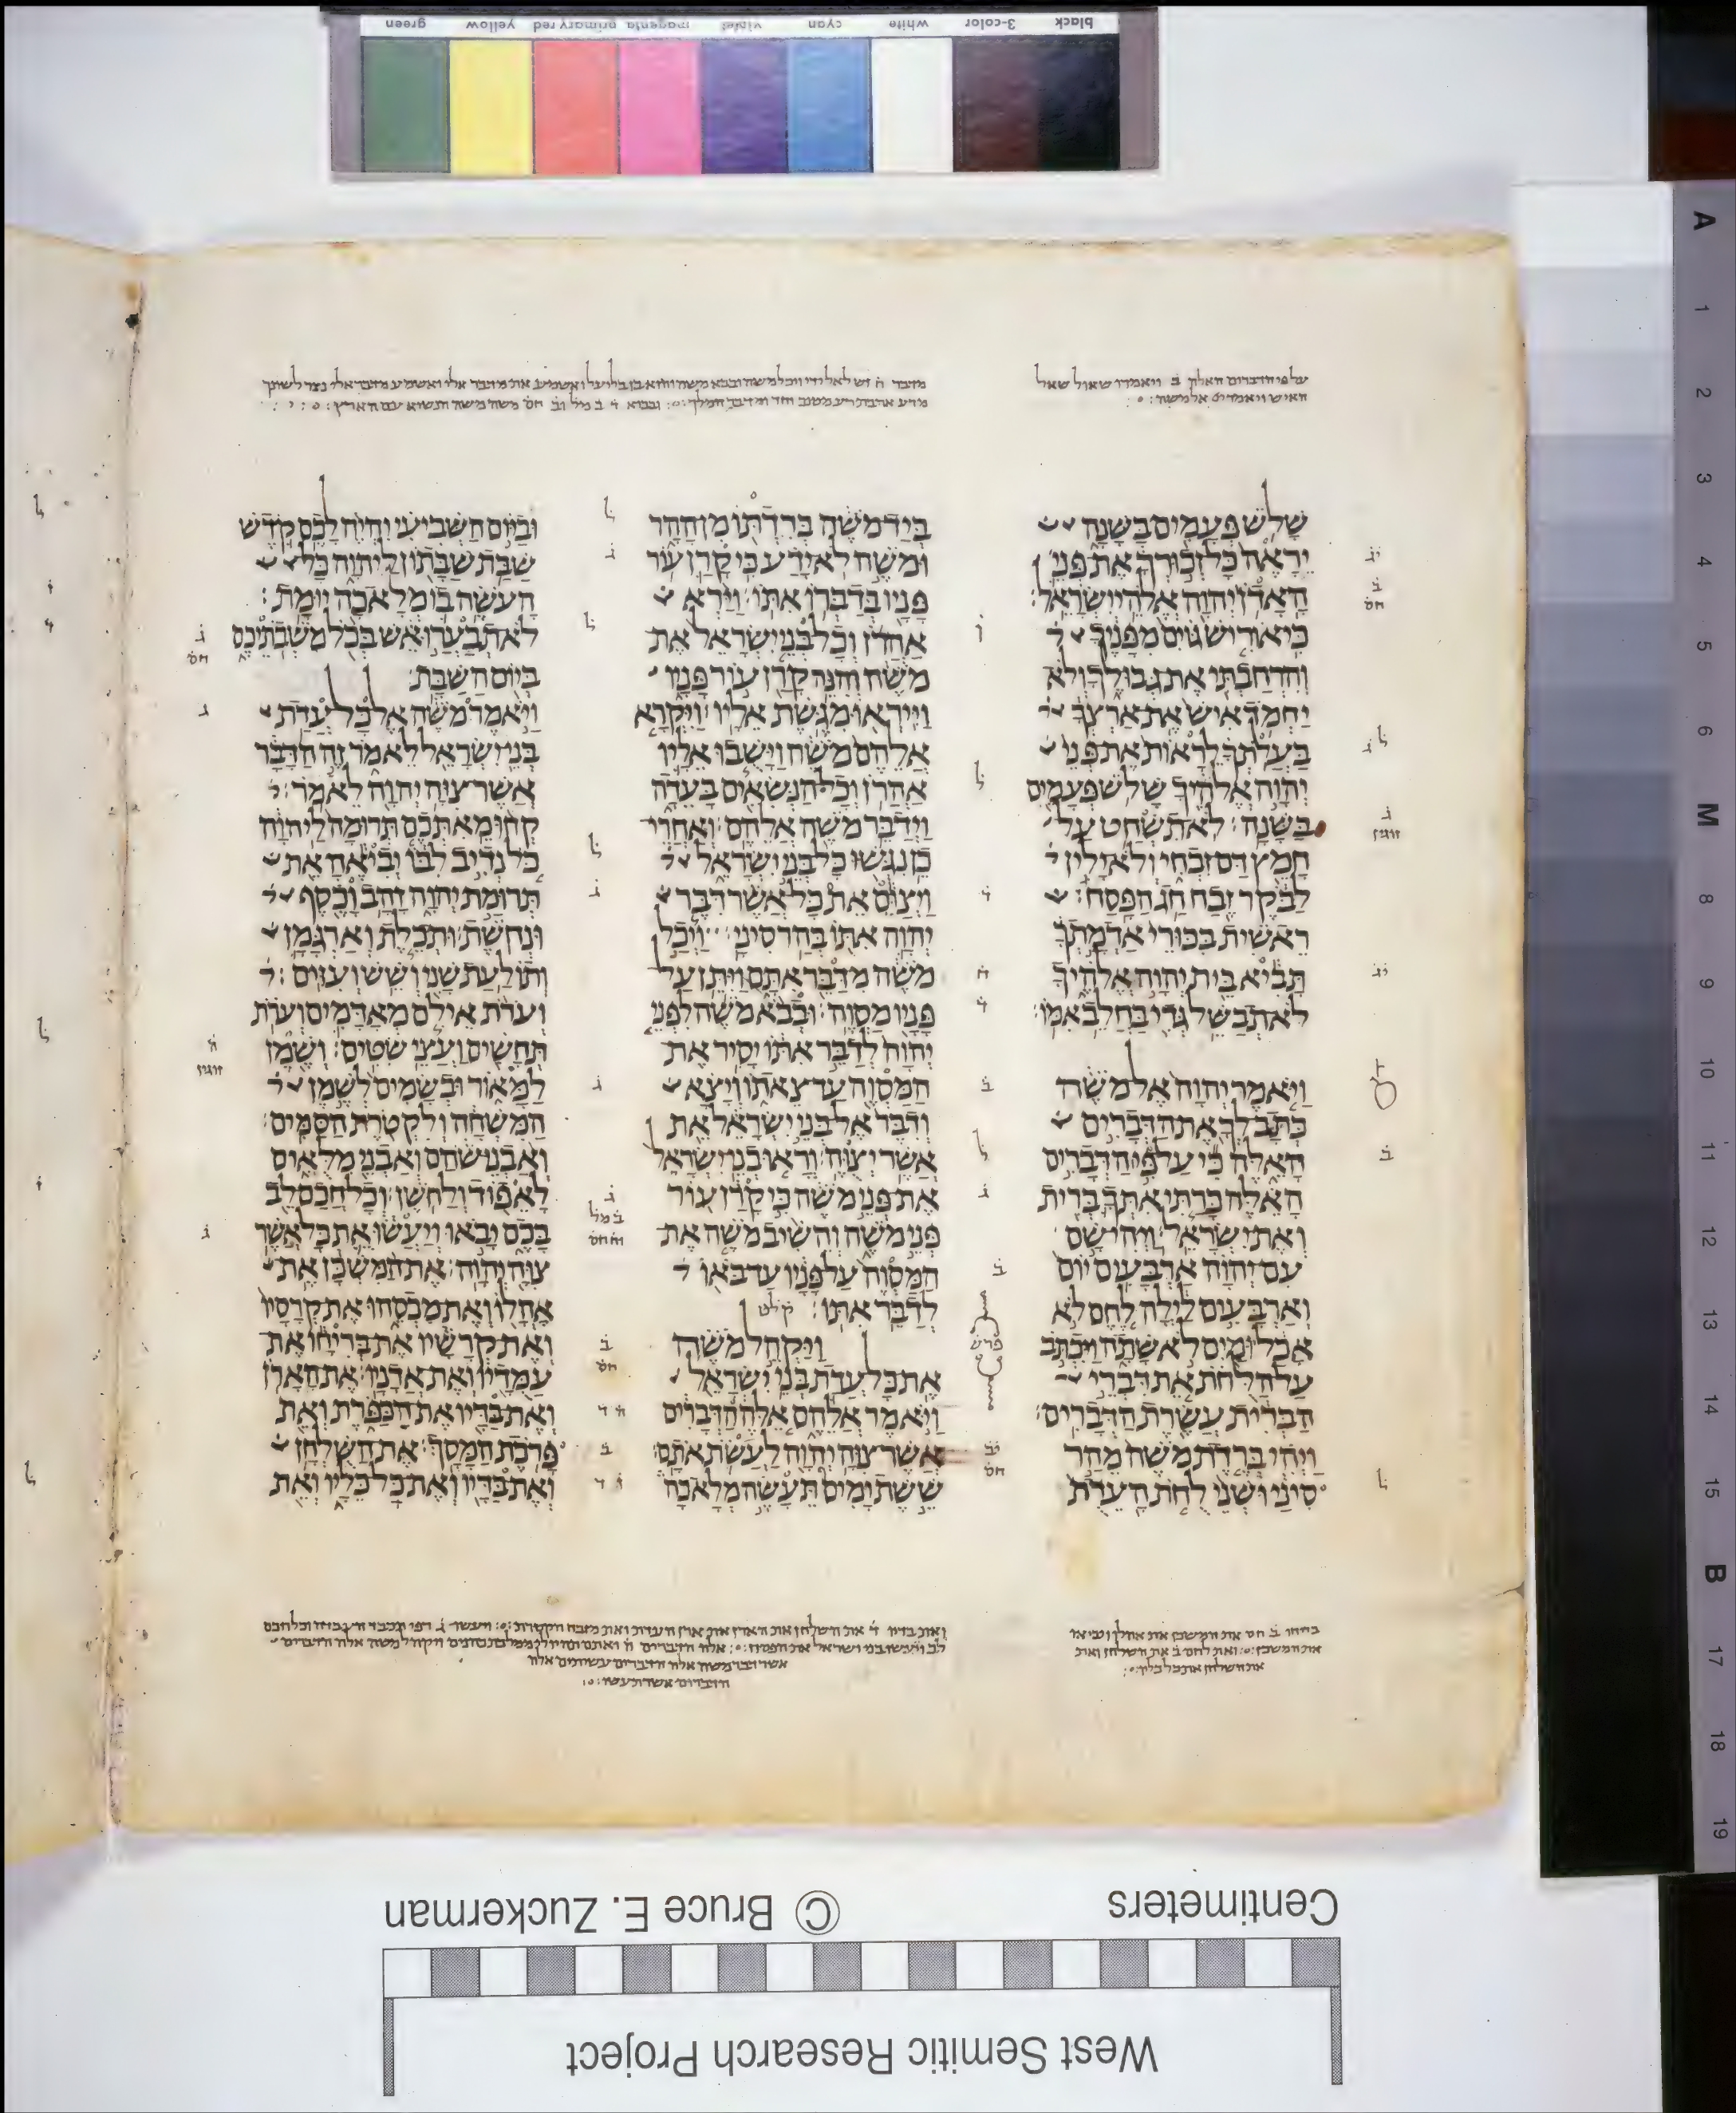 black 3-color white cyan violet magenta primary red yellow green
על פי הדברים האלה ב ויאמרו שאול שאל
האיש ויאמרו אל משה
שָׁלֹשׁ פְּעָמִים בַּשָּׁנָה
יֵרָאֶה כָּל זְכוּרְךָ אֶת פְּנֵי
הָאָדֹן יְהוָה אֱלֹהֵי יִשְׂרָאֵל׃
כִּי אוֹרִישׁ גּוֹיִם מִפָּנֶיךָ
וְהִרְחַבְתִּי אֶת גְּבוּלֶךָ וְלֹא
יַחְמֹד אִישׁ אֶת אַרְצְךָ
בַּעֲלֹתְךָ לֵרָאוֹת אֶת פְּנֵי
יְהוָה אֱלֹהֶיךָ שָׁלֹשׁ פְּעָמִים
בַּשָּׁנָה׃ לֹא תִשְׁחַט עַל
חָמֵץ דַּם זִבְחִי וְלֹא יָלִין
לַבֹּקֶר זֶבַח חַג הַפָּסַח׃
רֵאשִׁית בִּכּוּרֵי אַדְמָתְךָ
תָּבִיא בֵּית יְהוָה אֱלֹהֶיךָ
לֹא תְבַשֵּׁל גְּדִי בַּחֲלֵב אִמּוֹ׃
וַיֹּאמֶר יְהוָה אֶל מֹשֶׁה
כְּתָב לְךָ אֶת הַדְּבָרִים
הָאֵלֶּה כִּי עַל פִּי הַדְּבָרִים
הָאֵלֶּה כָּרַתִּי אִתְּךָ בְּרִית
וְאֶת יִשְׂרָאֵל׃ וַיְהִי שָׁם
עִם יְהוָה אַרְבָּעִים יוֹם
וְאַרְבָּעִים לַיְלָה לֶחֶם לֹא
אָכַל וּמַיִם לֹא שָׁתָה וַיִּכְתֹּב
עַל הַלֻּחֹת אֵת דִּבְרֵי
הַבְּרִית עֲשֶׂרֶת הַדְּבָרִים׃
וַיְהִי בְּרֶדֶת מֹשֶׁה מֵהַר
סִינַי וּשְׁנֵי לֻחֹת הָעֵדֻת
בְּיַד מֹשֶׁה בְּרִדְתּוֹ מִן הָהָר
וּמֹשֶׁה לֹא יָדַע כִּי קָרַן עוֹר
פָּנָיו בְּדַבְּרוֹ אִתּוֹ׃ וַיַּרְא
אַהֲרֹן וְכָל בְּנֵי יִשְׂרָאֵל אֶת
מֹשֶׁה וְהִנֵּה קָרַן עוֹר פָּנָיו
וַיִּירְאוּ מִגֶּשֶׁת אֵלָיו׃ וַיִּקְרָא
אֲלֵהֶם מֹשֶׁה וַיָּשֻׁבוּ אֵלָיו
אַהֲרֹן וְכָל הַנְּשִׂאִים בָּעֵדָה
וַיְדַבֵּר מֹשֶׁה אֲלֵהֶם׃ וְאַחֲרֵי
כֵן נִגְּשׁוּ כָּל בְּנֵי יִשְׂרָאֵל
וַיְצַוֵּם אֵת כָּל אֲשֶׁר דִּבֶּר
יְהוָה אִתּוֹ בְּהַר סִינָי׃ וַיְכַל
מֹשֶׁה מִדַּבֵּר אִתָּם וַיִּתֵּן עַל
פָּנָיו מַסְוֶה׃ וּבְבֹא מֹשֶׁה לִפְנֵי
יְהוָה לְדַבֵּר אִתּוֹ יָסִיר אֶת
הַמַּסְוֶה עַד צֵאתוֹ וְיָצָא
וְדִבֶּר אֶל בְּנֵי יִשְׂרָאֵל אֵת
אֲשֶׁר יְצֻוֶּה׃ וְרָאוּ בְנֵי יִשְׂרָאֵל
אֶת פְּנֵי מֹשֶׁה כִּי קָרַן עוֹר
פְּנֵי מֹשֶׁה וְהֵשִׁיב מֹשֶׁה אֶת
הַמַּסְוֶה עַל פָּנָיו עַד בֹּאוֹ
לְדַבֵּר אִתּוֹ׃ קלט
וַיַּקְהֵל מֹשֶׁה
אֶת כָּל עֲדַת בְּנֵי יִשְׂרָאֵל
וַיֹּאמֶר אֲלֵהֶם אֵלֶּה הַדְּבָרִים
אֲשֶׁר צִוָּה יְהוָה לַעֲשֹׂת אֹתָם׃
שֵׁשֶׁת יָמִים תֵּעָשֶׂה מְלָאכָה
פרש
וּבַיּוֹם הַשְּׁבִיעִי יִהְיֶה לָכֶם קֹדֶשׁ
שַׁבַּת שַׁבָּתוֹן לַיהוָה כָּל
הָעֹשֶׂה בוֹ מְלָאכָה יוּמָת׃
לֹא תְבַעֲרוּ אֵשׁ בְּכֹל מֹשְׁבֹתֵיכֶם
בְּיוֹם הַשַּׁבָּת׃
וַיֹּאמֶר מֹשֶׁה אֶל כָּל עֲדַת
בְּנֵי יִשְׂרָאֵל לֵאמֹר זֶה הַדָּבָר
אֲשֶׁר צִוָּה יְהוָה לֵאמֹר׃
קְחוּ מֵאִתְּכֶם תְּרוּמָה לַיהוָה
כֹּל נְדִיב לִבּוֹ יְבִיאֶהָ אֵת
תְּרוּמַת יְהוָה זָהָב וָכֶסֶף
וּנְחֹשֶׁת׃ וּתְכֵלֶת וְאַרְגָּמָן
וְתוֹלַעַת שָׁנִי וְשֵׁשׁ וְעִזִּים׃
וְעֹרֹת אֵילִם מְאָדָּמִים וְעֹרֹת
תְּחָשִׁים וַעֲצֵי שִׁטִּים׃ וְשֶׁמֶן
לַמָּאוֹר וּבְשָׂמִים לְשֶׁמֶן
הַמִּשְׁחָה וְלִקְטֹרֶת הַסַּמִּים׃
וְאַבְנֵי שֹׁהַם וְאַבְנֵי מִלֻּאִים
לָאֵפוֹד וְלַחֹשֶׁן׃ וְכָל חֲכַם לֵב
בָּכֶם יָבֹאוּ וְיַעֲשׂוּ אֵת כָּל אֲשֶׁר
צִוָּה יְהוָה׃ אֶת הַמִּשְׁכָּן אֶת
אָהֳלוֹ וְאֶת מִכְסֵהוּ אֶת קְרָסָיו
וְאֶת קְרָשָׁיו אֶת בְּרִיחָו אֶת
עַמֻּדָיו וְאֶת אֲדָנָיו׃ אֶת הָאָרֹן
וְאֶת בַּדָּיו אֶת הַכַּפֹּרֶת וְאֵת
פָּרֹכֶת הַמָּסָךְ׃ אֶת הַשֻּׁלְחָן
וְאֶת בַּדָּיו וְאֶת כָּל כֵּלָיו וְאֵת
אשר דבר משה אלה הדברים עשיתים אלה
הדברים אשר תעשו
את השלחן את כל כליו
A 1 2 3 4 5 6 M 8 9 10 11 12 13 14 15 B 17 18 19
Centimeters © Bruce E. Zuckerman
West Semitic Research Project